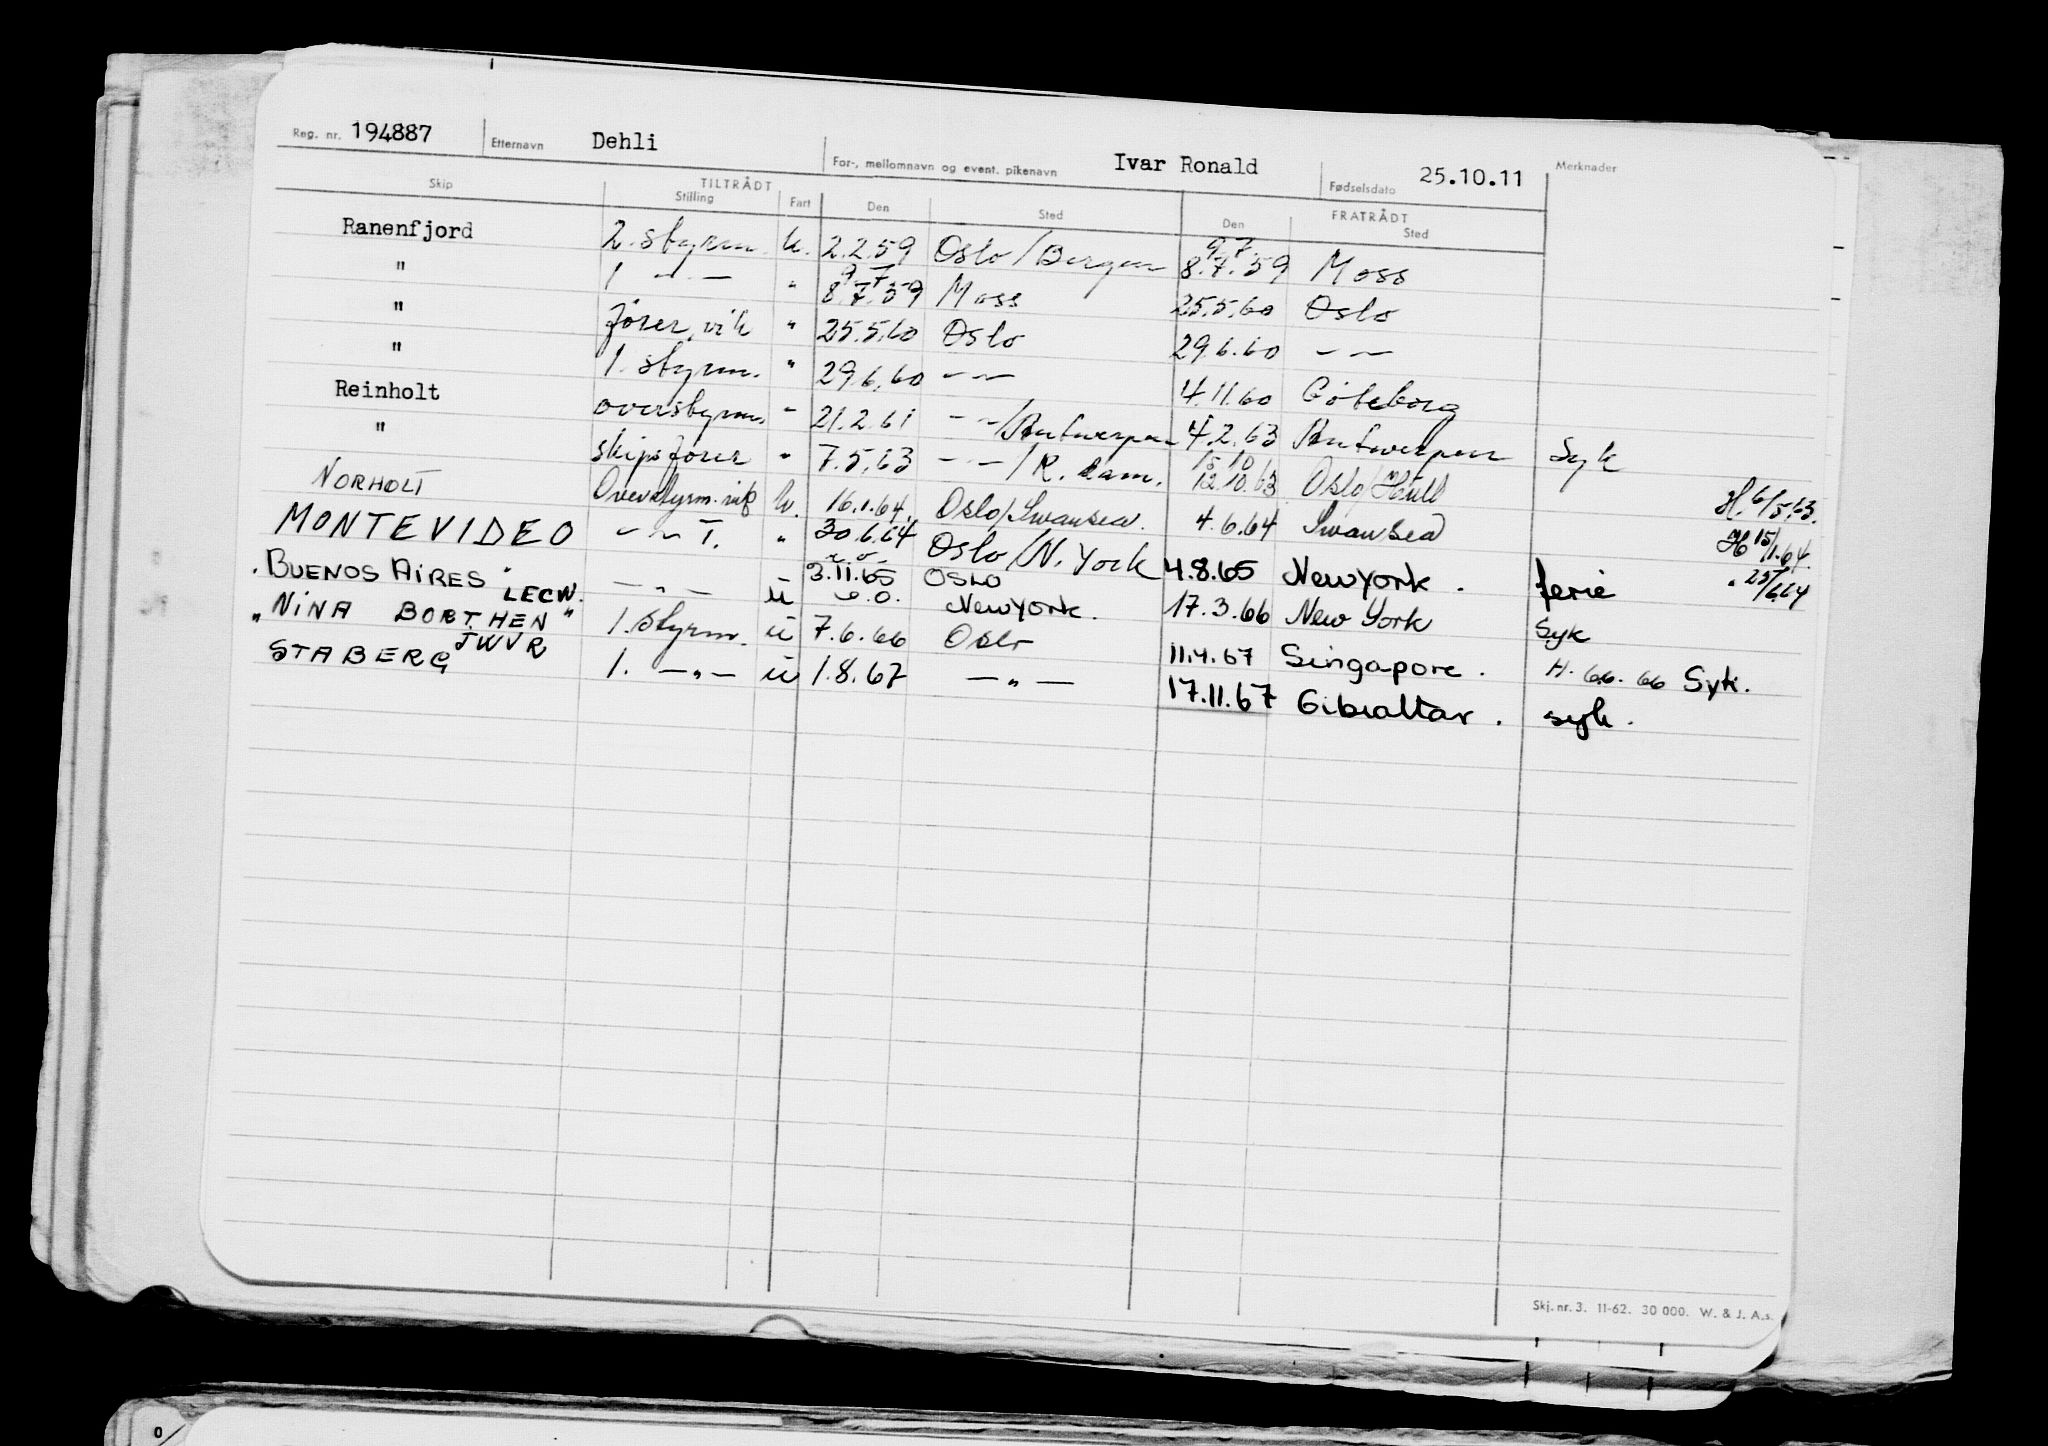 Reg. nr. 194887 Etternavn Dehli For-, mellomnavn og event. pikenavn Ivar Ronald Fødselsdato 25.10.11 Merknader
Skip TILTRÅDT Stilling Fart Den Sted FRATRÅDT Den Sted
Ranenfjord 2. styrm. u. 2.2.59 Oslo/Bergen 9.7. 8.7.59 Moss
" 1 — " — " 9.7. 8.7.59 Moss 25.5.60 Oslo
" fører, vik " 25.5.60 Oslo 29.6.60 — " —
" 1. styrm. " 29.6.60 — " — 4.11.60 Göteborg
Reinholt overstyrm. " 21.2.61 — " —/Antwerpen 4.2.63 Antwerpen Syk
" skipsfører " 7.5.63 — " —/R.dam. 15.10 12.10.63 Oslo/Hull H. 6/5.63.
NORHOLT Overstyrm. u. 16.1.64. Oslo/Swansea. 4.6.64 Swansea H 15/1.64.
MONTEVIDEO — " — T. " 30.6.64 Oslo/N. York 4.8.65 New York. ferie " 25/6.64
"BUENOS AIRES" LECW. — " — u 3.11.65 OSLO New York. 17.3.66 New York Syk
"NINA BORTHEN" JWVR 1. Styrm. u 7.6.66 Oslo 11.4.67 Singapore. H. 6.6.66 Syk.
STABERG 1. — " — u 1.8.67 — " — 17.11.67 Gibraltar. syk.
Skj. nr. 3. 11-62. 30 000. W. & J. A.s.
0